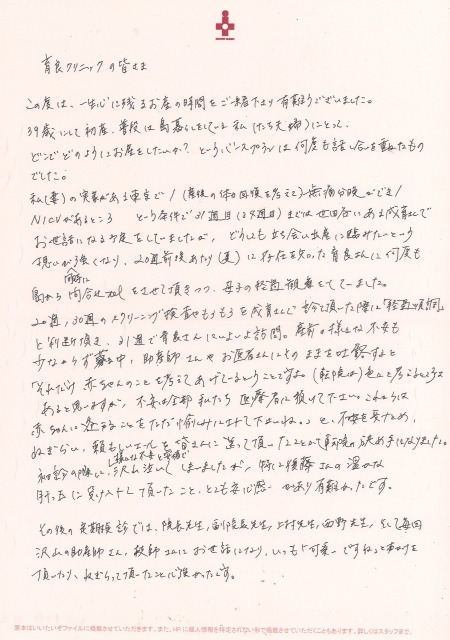 育良クリニックの皆さま
この度は、一生心に残るお産の時間をご一緒下さり有難うございました。
39歳にして初産、普段は島暮らしをしている私(たち夫婦)にとって、
どこでどのようにお産をしたいか?というバースプランは何度も話し合を重ねたもの
でした。
私(妻)の実家がある東京で/(産後の体の回復を考えて)無痛分娩ができ/
NICUがあるところ という条件で31週目(29週目)までは世田谷にある成育さんで
お世話になる予定をしていましたが、どうしても立ち会い出産に臨みたいという
想いが強くなり、20週前後あたり(夏)に存在を知った育良さんに何度も
島から問合せtelをさせて頂きつつ、母子の経過観察をしていました。
20週、30週のスクリーニング検査もろもろを成育さんで 頂いた際に「経過順調」
と判断頂き、31週で育良さんにいよいよ訪問。産前の様々な不安も
少なからず 中、助産師さんやお医者さんにそのままを吐露すると
「それだけ赤ちゃんのことを考えてあげているということですよ。(転院は)色々と考えるところは
あると思いますが、不安は全部私たち医療者に預けて下さい。これからは
赤ちゃんに逢えることをただただ愉しみにしてて下さいね。」と、不安を受けとめ、
ねぎらい、頼もしいエールを皆さんに送って頂いたことが転院の決め手になりました。
初診の際に、様々な不安と安堵で沢山泣いてしまいましたが、特に後藤さんの温かな
対応に受け入れて頂いたこと、とても安心感があり有難かったです。
その後の定期検診では、院長先生、副院長先生、上村先生、西野先生、そして毎回
沢山の助産師さん、教師さんにお世話になり、いつも「可愛いですね」って声かけを
頂いたり、ねぎらって頂いたことに 強かったです。
原本はいいたいそファイルに掲載させていただきます。また、HPに個人情報を特定されない形で掲載させていただくこともあります。詳しくはスタッフまで。